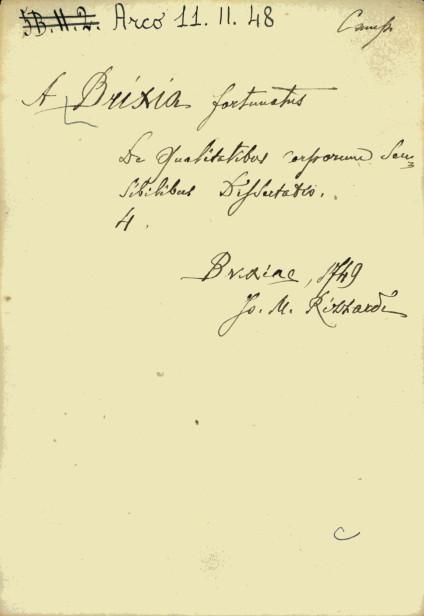 5B.II.2. Arco 11. II. 48
Camp.
A Brixia fortunatus
De Qualitatibus corporum Sen=
sibilibus Dissertatio.
4.
Brixiae, 1749
Jo. M. Rizzardi
C